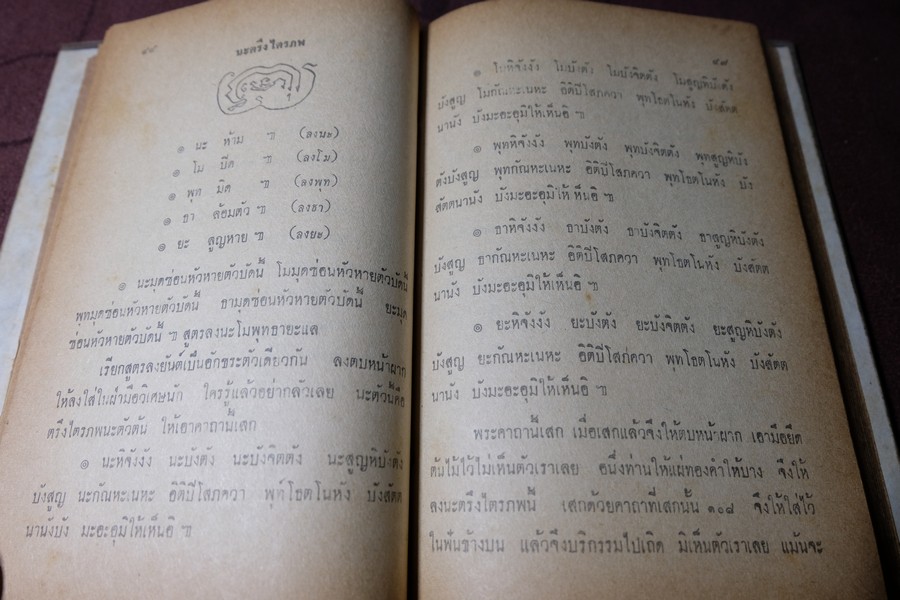 ๔๘
นะตรึงไตรภพ
๏ นะ ห้าม ฯ (ลงนะ)
๏ โม ปิด ฯ (ลงโม)
๏ พุท มิด ฯ (ลงพุท)
๏ ธา ล้อมตัว ฯ (ลงธา)
๏ ยะ สูญหาย ฯ (ลงยะ)
๏ นะมุดซ่อนหัวหายตัวบัดนี้ โมมุดซ่อนหัวหายตัวบัดนี้
พุทมุดซ่อนหัวหายตัวบัดนี้ ธามุดซ่อนหัวหายตัวบัดนี้ ยะมุด
ซ่อนหัวหายตัวบัดนี้ ฯ สูตรลงนะโมพุทธายะแล
เรียกสูตรลงยันต์เป็นอักขระตัวเดียวกัน ลงตบหน้าผาก
ให้ลงใส่ในฝ่ามือวิเศษนัก ใครรู้แล้วอย่ากลัวเลย นะตัวนี้คือ
ตรึงไตรภพนะตัวต้น ให้เอาคาถานี้เสก
๏ นะหิจังงัง นะบังตัง นะบังจิตตัง นะสูญหิบังตัง
บังสูญ นะกัณหะเนหะ อิติปิโสภควา พุท์โธตโนหัง บังสัตต
นานังบัง มะอะอุมิให้เห็นอิ ฯ
๔๙
๏ โมหิจังงัง โมบังตัง โมบังจิตตัง โมสูญหิบังตัง
บังสูญ โมกัณหะเนหะ อิติปิโสภควา พุทโธตโนหัง บังสัตต
นานัง บังมะอะอุมิให้เห็นอิ ฯ
๏ พุทหิจังงัง พุทบังตัง พุทบังจิตตัง พุทสูญหิบัง
ตังบังสูญ พุทกัณหะเนหะ อิติปิโสภควา พุทโธตโนหัง บัง
สัตตนานัง บังมะอะอุมิให้เห็นอิ ฯ
๏ ธาหิจังงัง ธาบังตัง ธาบังจิตตัง ธาสูญหิบังตัง
บังสูญ ธากัณหะเนหะ อิติปิโสภควา พุทโธตโนหัง บังสัตต
นานัง บังมะอะอุมิให้เห็นอิ ฯ
๏ ยะหิจังงัง ยะบังตัง ยะบังจิตตัง ยะสูญหิบังตัง
บังสูญ ยะกัณหะเนหะ อิติปิโสภควา พุทโธตโนหัง บังสัตต
นานัง บังมะอะอุมิให้เห็นอิ ฯ
พระคาถานี้เสก เมื่อเสกแล้วจึงให้ตบหน้าผาก เอามือยึด
ต้นไม้ไว้ไม่เห็นตัวเราเลย อนึ่งท่านให้แผ่ทองคำให้บาง จึงให้
ลงนะตรึงไตรภพนี้ เสกด้วยคาถาที่เสกนั้น ๑๐๘ จึงให้ใส่ไว้
ในฟันข้างบน แล้วจึงบริกรรมไปเถิด มิเห็นตัวเราเลย แม้นจะ